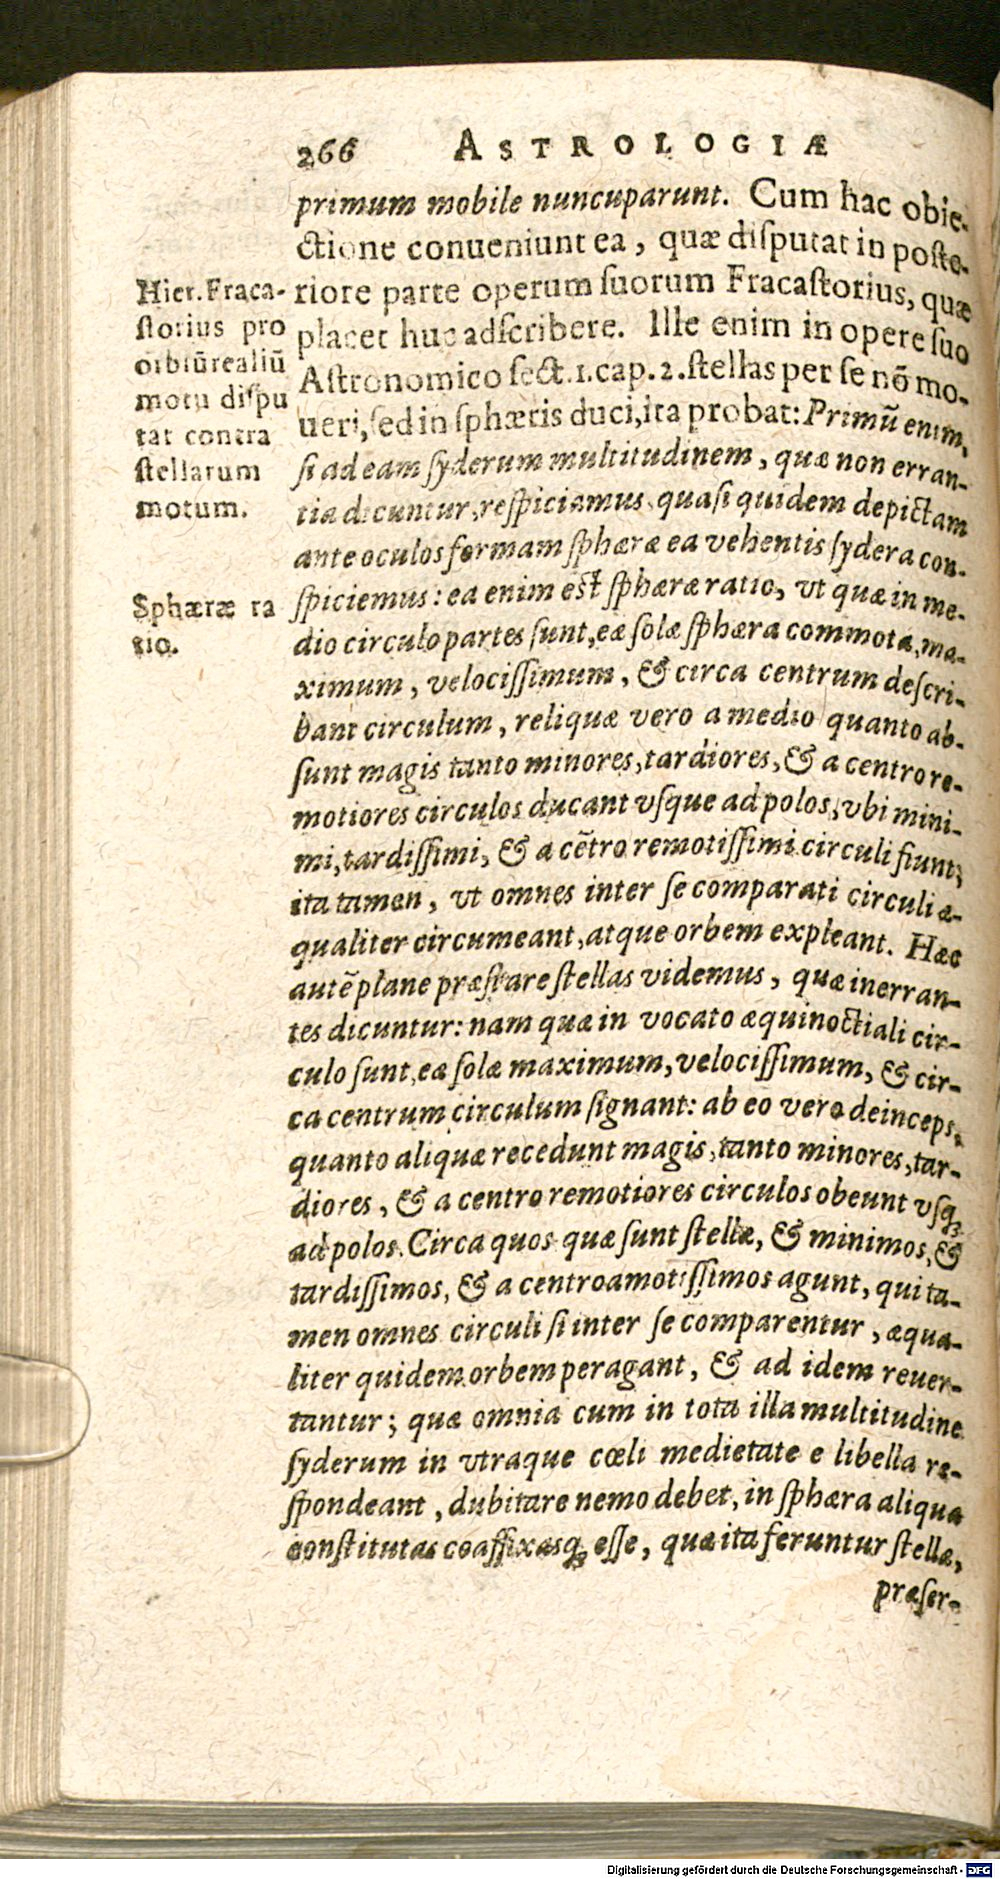 266 ASTROLOGIÆ
primum mobile nuncuparunt. Cum hac obie-
ctione conueniunt ea, quæ diſputat in poſte-
riore parte operum ſuorum Fracaſtorius, quæ
placet huc adſcribere. Ille enim in opere ſuo
Aſtronomico ſect. 1. cap. 2. ſtellas per ſe nō mo-
ueri, ſed in ſphæris duci, ita probat: Primū enim,
ſi ad eam ſyderum multitudinem, quæ non erran-
tia dicuntur, reſpiciamus, quaſi quidem depictam
ante oculos formam ſphæræ ea vehentis ſydera con-
ſpiciemus: ea enim eſt ſphæræ ratio, vt quæ in me-
dio circulo partes ſunt, eæ ſolæ ſphæra commota, ma-
ximum, velociſſimum, & circa centrum deſcri-
bant circulum, reliquæ vero a medio quanto ab-
ſunt magis tanto minores, tardiores, & a centro re-
motiores circulos ducant vſque ad polos, vbi mini-
mi, tardiſſimi, & a cētro remotiſſimi circuli fiunt;
ita tamen, vt omnes inter ſe comparati circuli æ-
qualiter circumeant, atque orbem expleant. Hæc
autē plane præſtare ſtellas videmus, quæ inerran-
tes dicuntur: nam quæ in vocato æquinoctiali cir-
culo ſunt, eæ ſolæ maximum, velociſſimum, & cir-
ca centrum circulum ſignant: ab eo vero deinceps,
quanto aliquæ recedunt magis, tanto minores, tar-
diores, & a centro remotiores circulos obeunt vſq;
ad polos. Circa quos quæ ſunt ſtellæ, & minimos, &
tardiſſimos, & a centro amotiſſimos agunt, qui ta-
men omnes circuli ſi inter ſe comparentur, æqua-
liter quidem orbem peragant, & ad idem reuer-
tantur; quæ omnia cum in tota illa multitudine
ſyderum in vtraque cœli medietate e libella re-
ſpondeant, dubitare nemo debet, in ſphæra aliqua
conſtitutas coaffixasq; eſſe, quæ ita feruntur ſtellæ,
præſer-
Hier. Fraca-
ſtorius pro
orbiū realiū
motu diſpu
tat contra
ſtellarum
motum.
Sphæræ ra
tio.
Digitalisierung gefördert durch die Deutsche Forschungsgemeinschaft - DFG